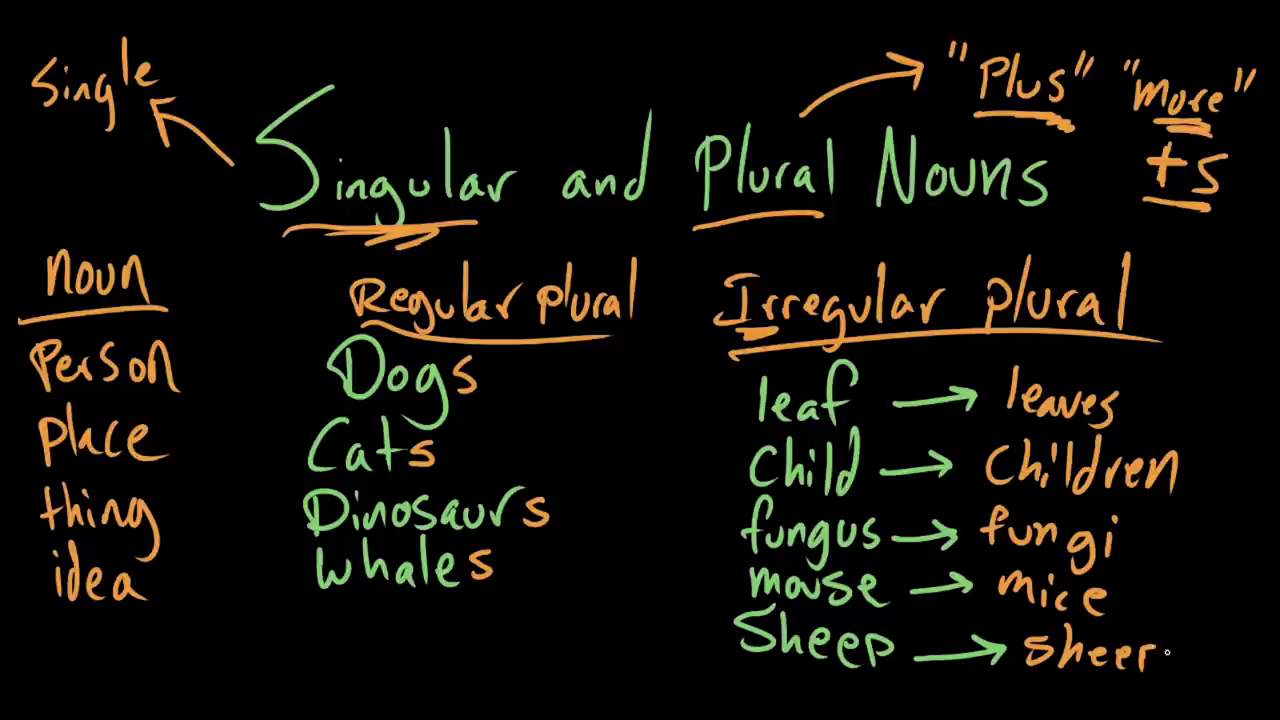 Single
"Plus" "more"
+s
Singular and Plural Nouns
noun
Person
place
thing
idea
Regular plural
Dogs
Cats
Dinosaurs
Whales
Irregular plural
leaf → leaves
Child → Children
fungus → fungi
mouse → mice
Sheep → sheer